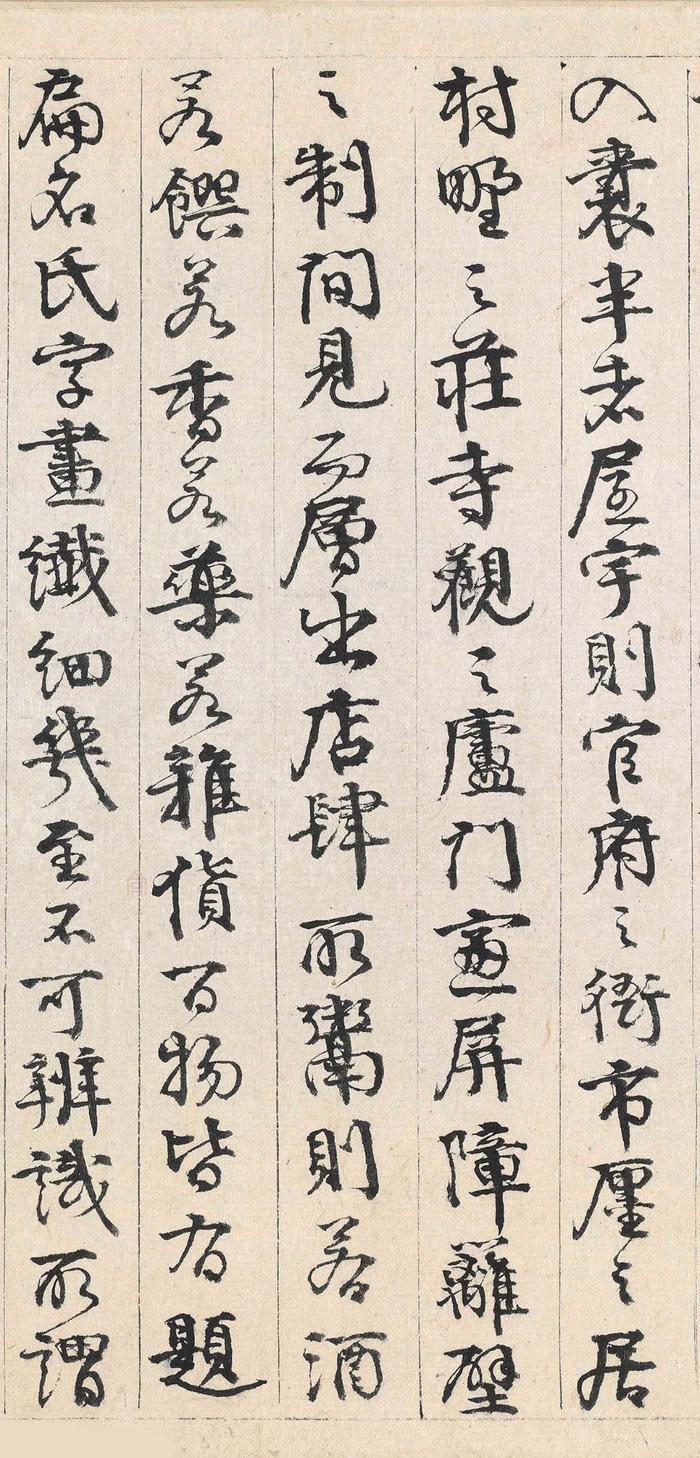 入囊半者屋宇則官府之衙市廛之居
村野之莊寺觀之廬門窻屏障籬壁
之制間見而層出店肆所鬻則若酒
若饌若香若藥若雜貨百物皆有題
扁名氏字畫纖細幾至不可辨識所謂